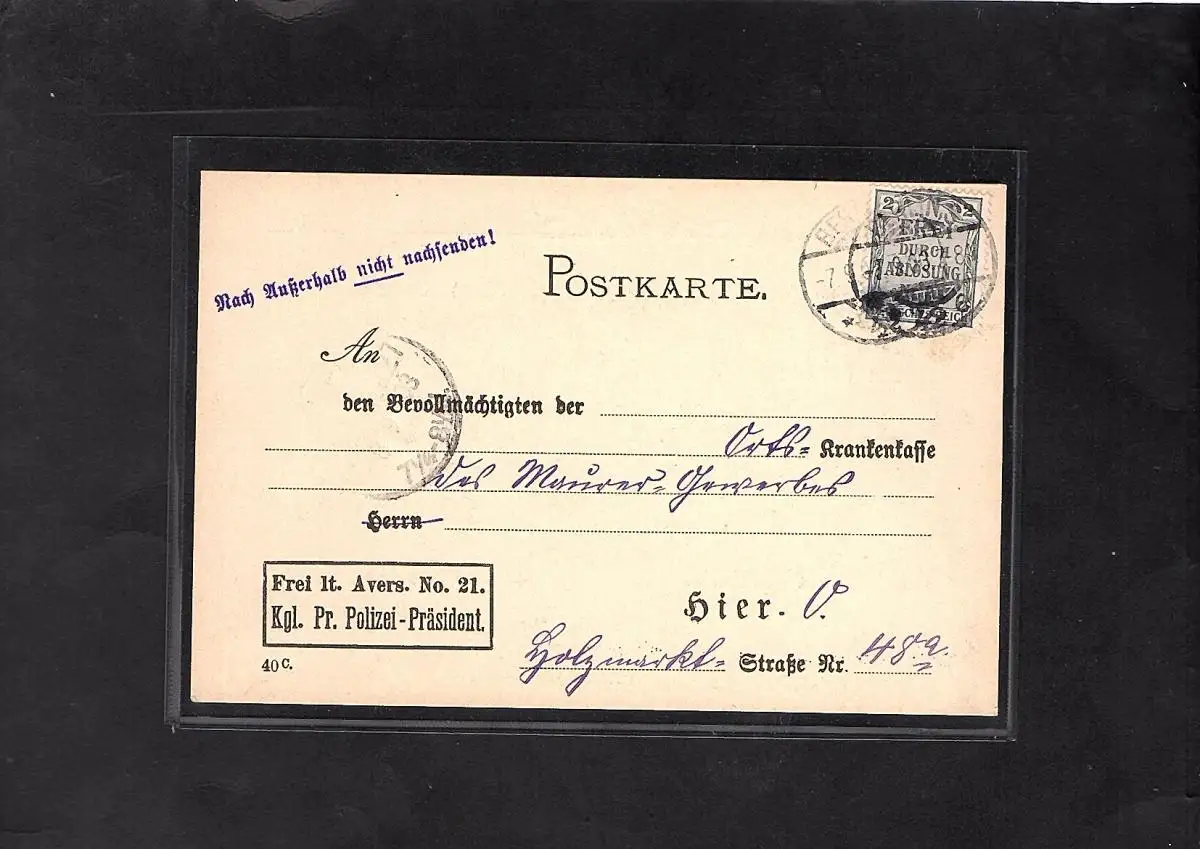 Nach Außerhalb nicht nachsenden!
POSTKARTE.
2 2
FREI
DURCH
ABLÖSUNG
An
den Bevollmächtigten der
Orts= Krankenkasse
des Maurer-Gewerbes
Herrn
Frei lt. Avers. No. 21.
Kgl. Pr. Polizei-Präsident.
Hier. O.
Holzmarkt- Straße Nr. 48a
40 C.